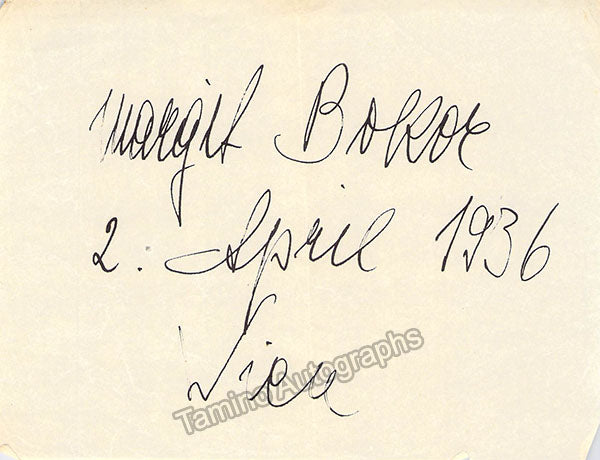 Margit Bokor
2. April 1936
Wien
Tamino Autographs